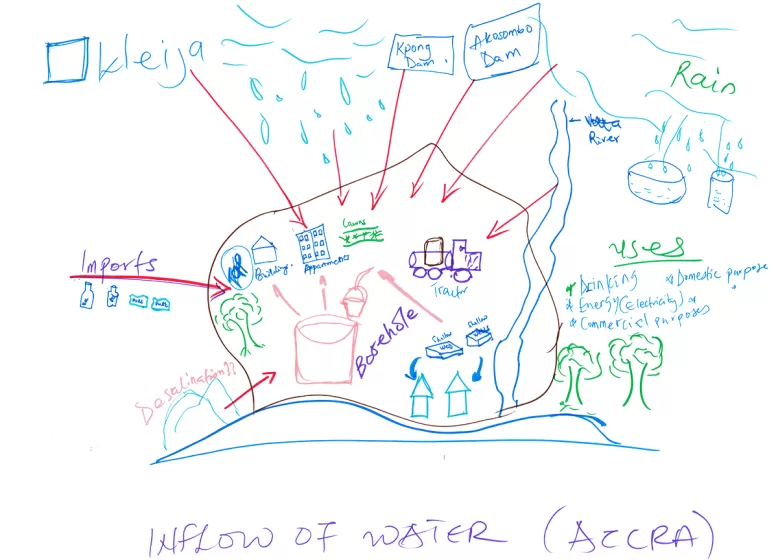 Kleija
Kpong
Dam.
Akosombo
Dam
Rain
River
Lawns
Building.
Appartments
Tractor
Imports
Borehole
Shallow
Well
Desalination??
uses
* Drinking
* Domestic purpose
* Energy (electricity)
* Commercial purposes
INFLOW OF WATER (ACCRA)